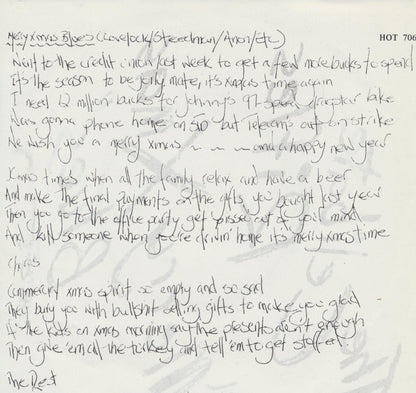 Merry Xmas Blues (Lovelock/Steedman/Anon/etc)
HOT 706
Went to the credit union last week to get a few more bucks to spend
It's the season to be jolly mate, it's xmas time again
I need 12 million bucks for Johnny's 97 speed dragstar bike
Was gonna phone home on STD but Telecom's out on strike
We wish you a merry xmas and a happy new year
Xmas times when all the family relax and have a beer
And make the final payments on the gifts you bought last year
Then you go to the office party get pissed out of your mind
And kill someone when you're drivin' home it's merry xmas time
Chorus
Commercial xmas spirit so empty and so sad
They bury you with bullshit selling gifts to make you glad
If the kids on xmas morning say the presents aren't enough
Then give 'em all the turkey and tell 'em to get stuffed
The Rest